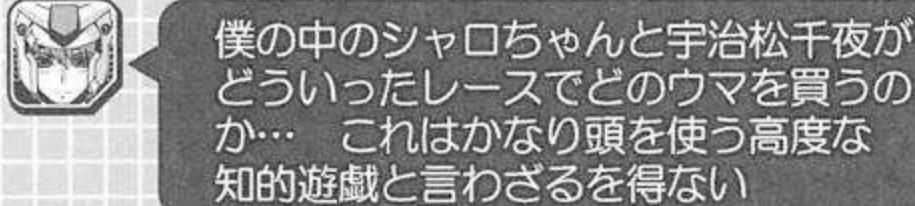 僕の中のシャロちゃんと宇治松千夜が
どういったレースでどのウマを買うの
か… これはかなり頭を使う高度な
知的遊戯と言わざるを得ない